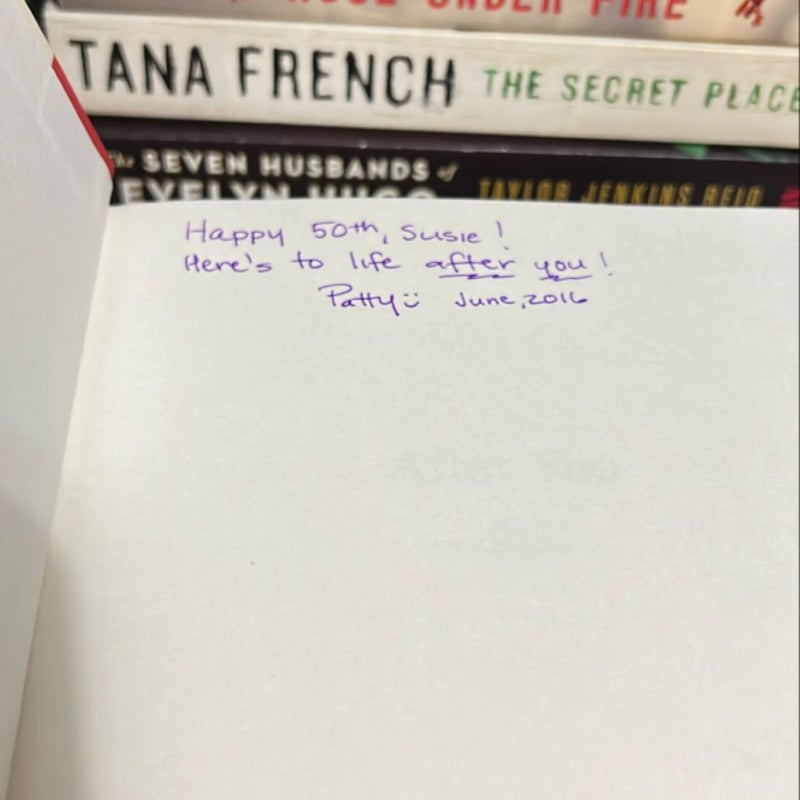 ROSE UNDER FIRE
TANA FRENCH THE SECRET PLACE
The SEVEN HUSBANDS of
EVELYN HUGO TAYLOR JENKINS REID
Happy 50th, Susie!
Here's to life after you!
Patty ü June, 2016
After You